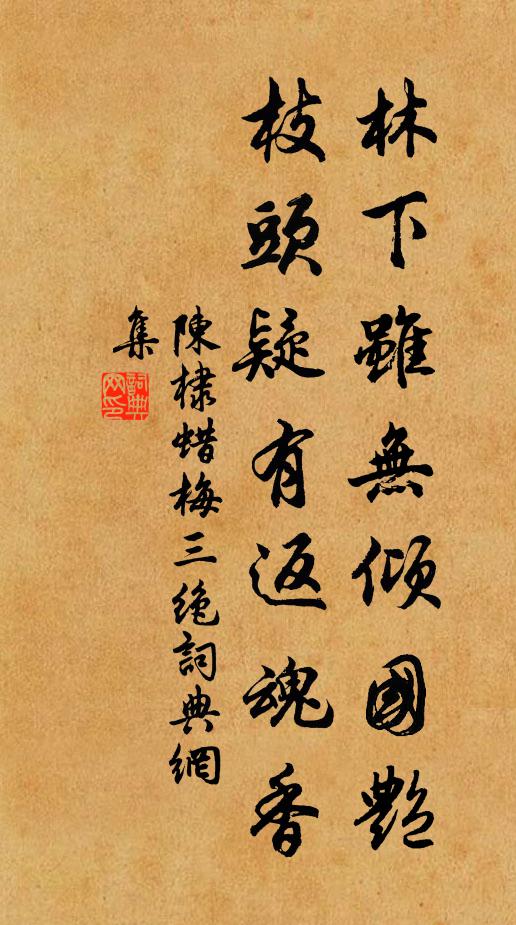 林下雖無傾國艷
枝頭疑有返魂香
陳棣蜡梅三絶詞典網
集
詞典网印